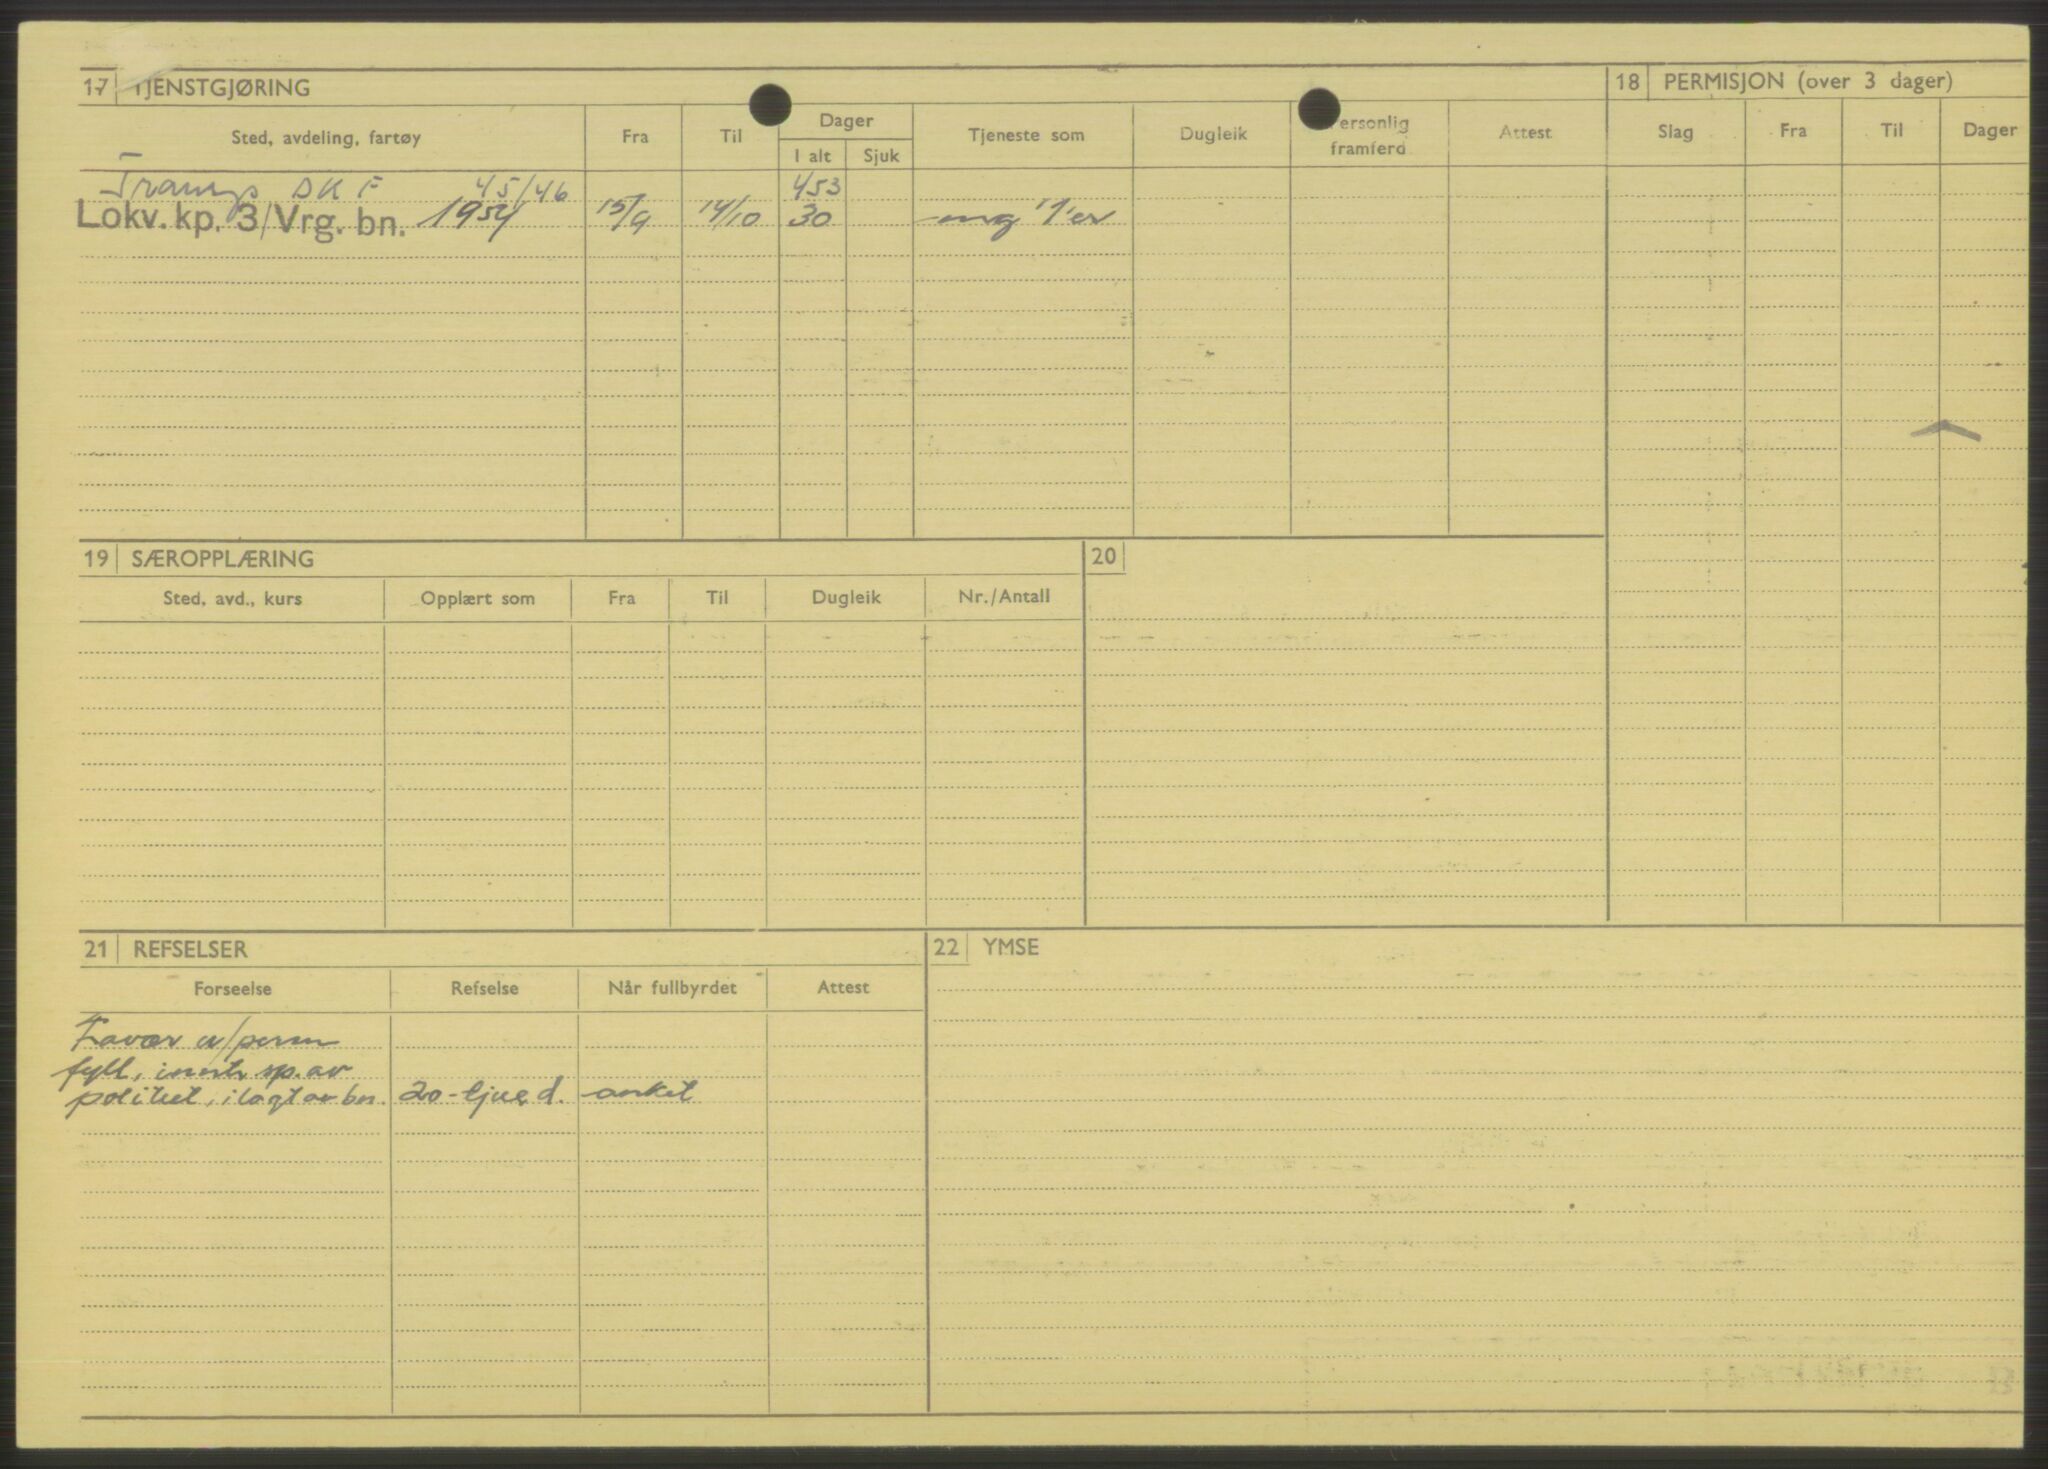 17 TJENSTGJØRING
18 PERMISJON (over 3 dager)
Sted, avdeling, fartøy Fra Til Dager Tjeneste som Dugleik Personlig framferd Attest Slag Fra Til Dager
I alt Sjuk
DKF 45/46 453
Lokv. kp. 3/Vrg. bn. 1954 15/9 14/10 30 mg 1'er
19 SÆROPPLÆRING
20
Sted, avd., kurs Opplært som Fra Til Dugleik Nr./Antall
21 REFSELSER
22 YMSE
Forseelse Refselse Når fullbyrdet Attest
Fravær u/perm
fyll, av
politiet, ilagt av bn. 20-tjue d. arrest